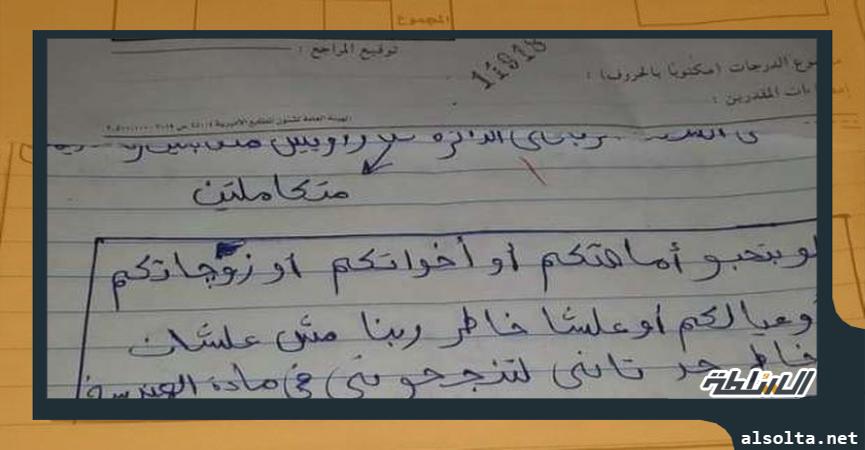 المجموع
توقيع المراجع :
11918
الدرجات (مكتوبًا بالحروف) :
المقدرين :
الهيئة العامة لشئون المطابع الأميرية
الدائرة
متكاملتين
لو بتحبو أماهتكم أو أخواتكم أو زوجاتكم
أو عيالكم أو علشا خاطر ربنا مش علشان
خاطر حد تاني لتنجحوني في مادة الهندسة
السلطة
alsolta.net